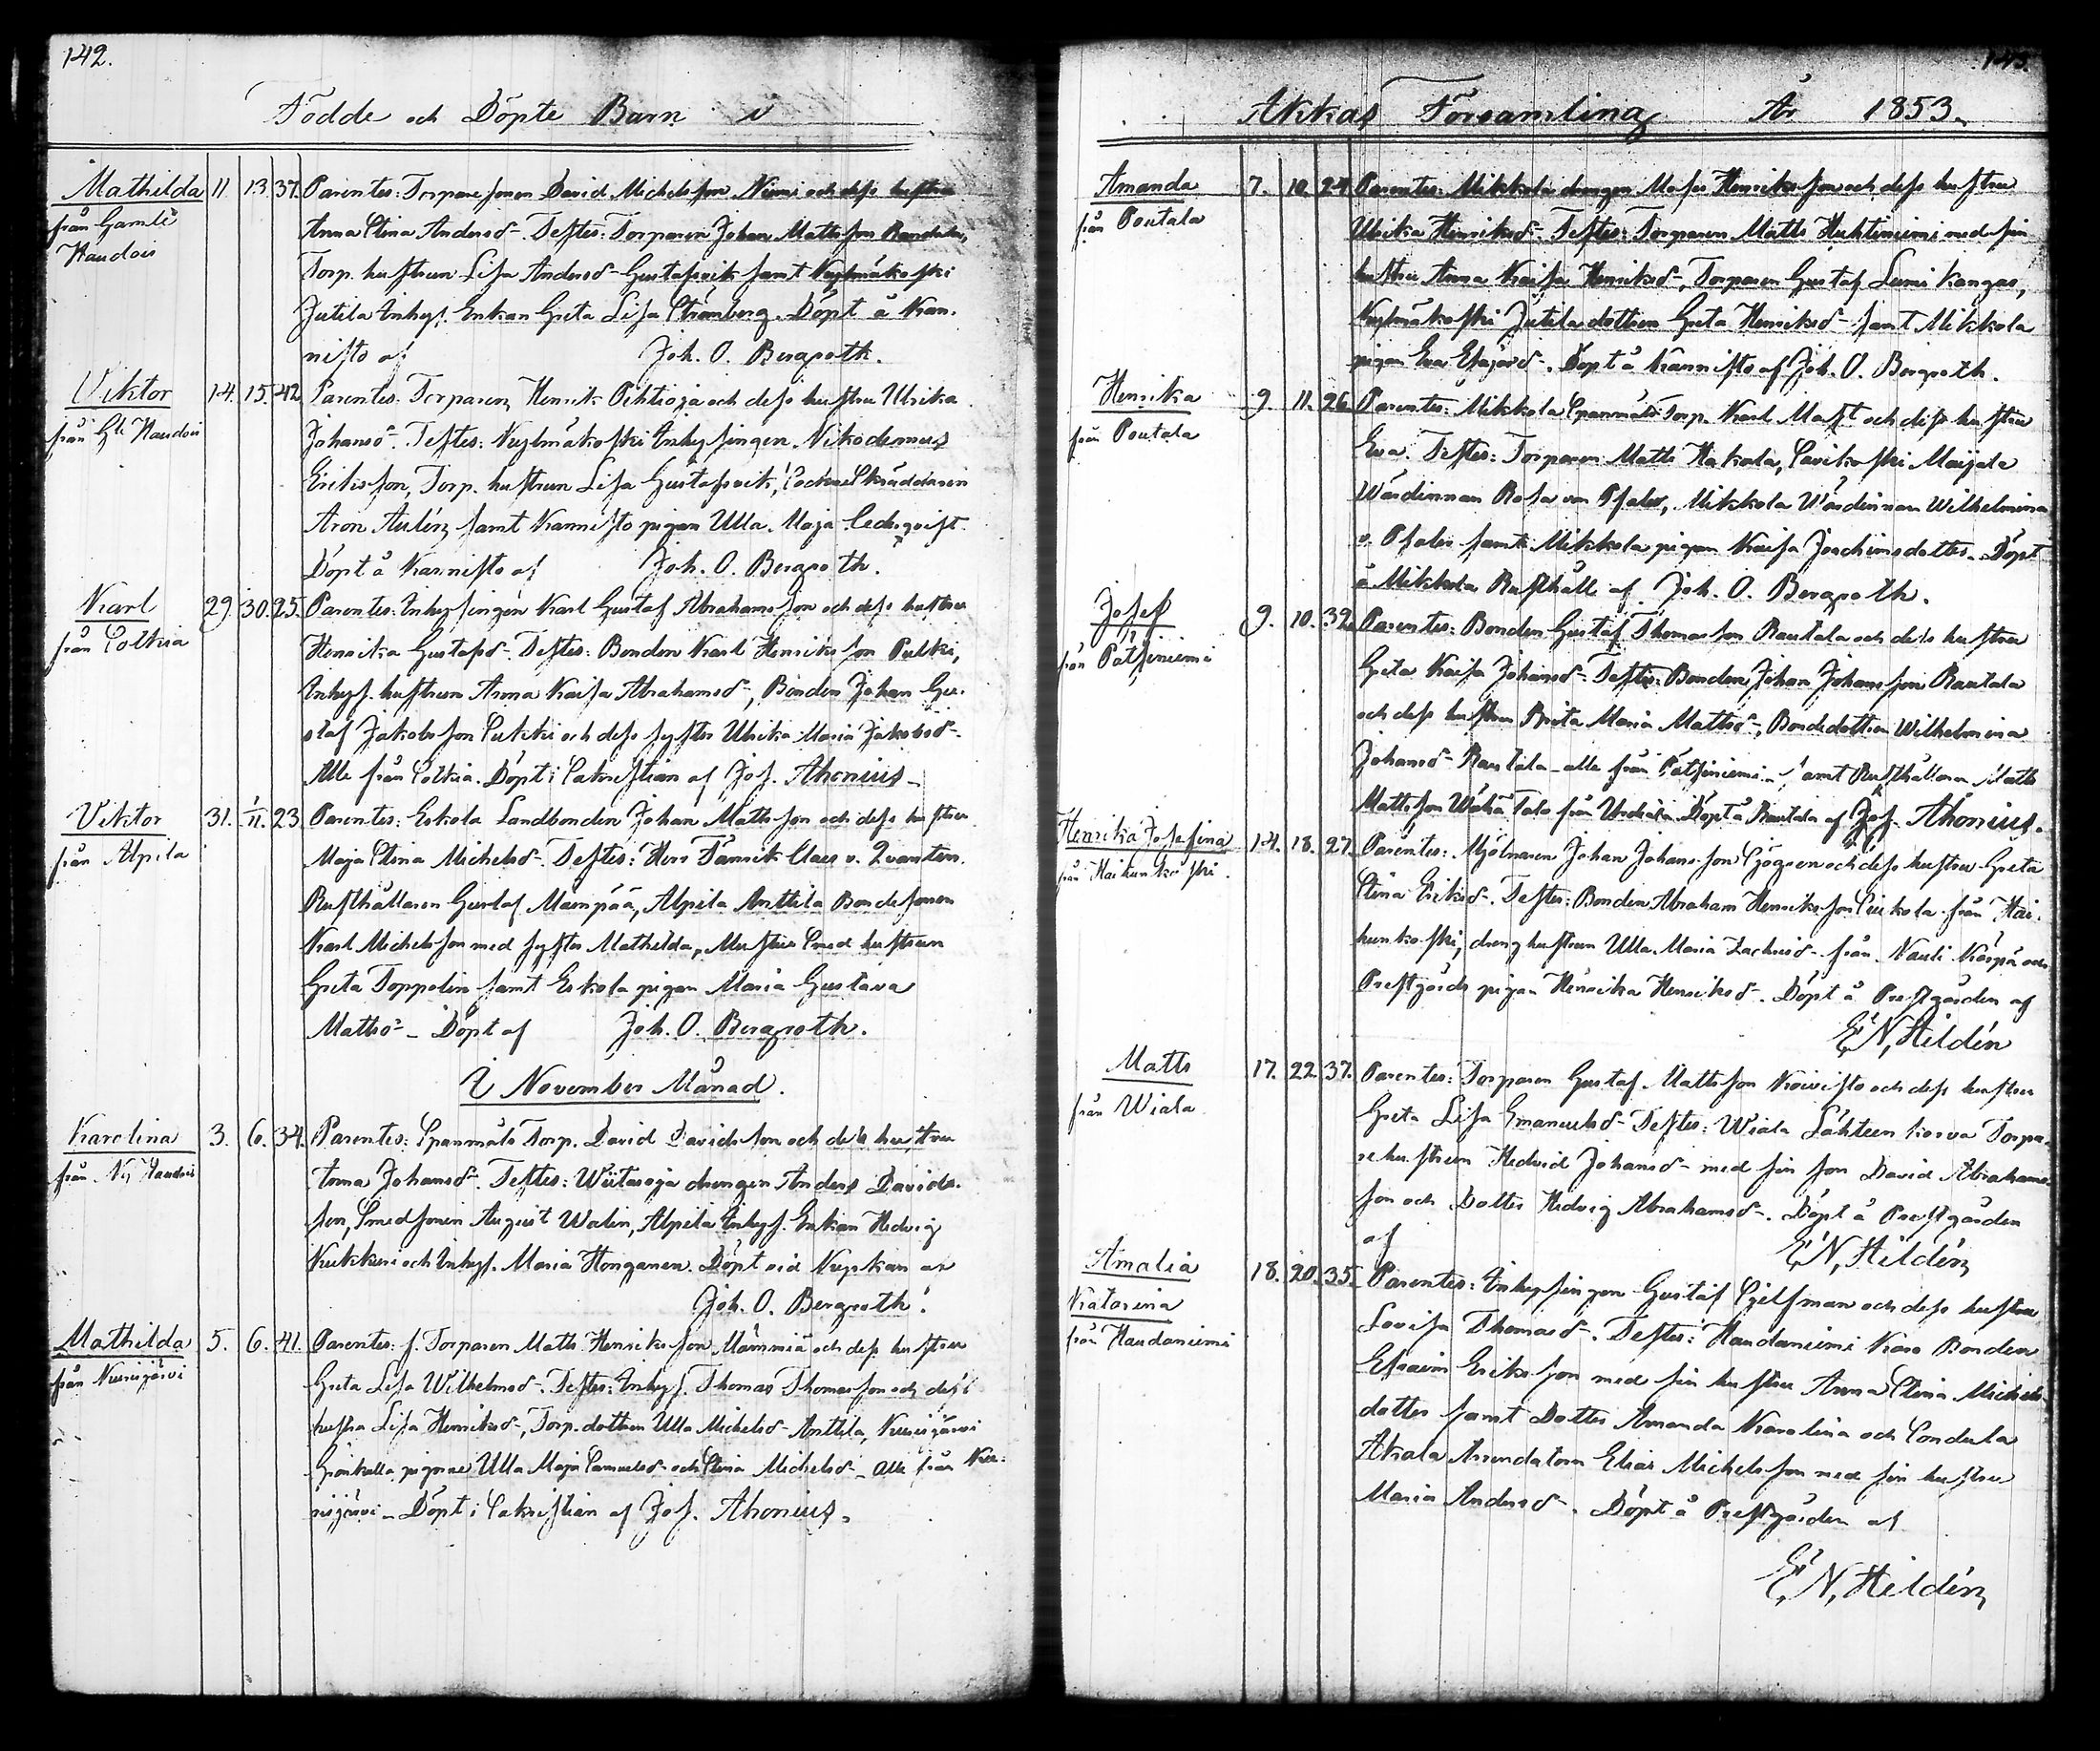 142.
Födde och Döpte Barn i
Mathilda 11. 13. 37. Parentes: Torpare sonen David Michelsson Niemi och dess hustru
från Gamle Anna Stina Andersd:r. Testes: Torparen Johan Mattsson Randala,
Haudois Torp. hustrun Lisa Andersd:r Gustafsvik samt Kylmäkoski
Jutila Inhys. Enkan Greta Lisa Strömberg. Döpt å Kan-
nisto af Joh. O. Bergroth.
Viktor 14. 15. 42. Parentes: Torparen Henrik Pihtioja och dess hustru Ulrika
från Gle Haudois Johansd:r. Testes: Kylmäkoski Inhysingen Nikodemus
Eriksson, Torp. hustrun Lisa Gustafsvik, Sockne Skräddaren
Aron Aulén samt Kannisto pigan Ulla Maja Cederqvist.
Döpt å Kannisto af Joh. O. Bergroth.
Karl 29. 30. 25. Parentes: Inhysingen Karl Gustaf Abrahamsson och dess hustru
från Sotkia Henrika Gustafsd:r. Testes: Bonden Karl Henriksson Pulkki,
Inhys. hustrun Anna Kaisa Abrahamsd:r, Bonden Johan Gu-
staf Jakobsson Pukki och dess syster Ulrika Maria Jakobsd:r.
Alle från Sotkia. Döpt i Sakristian af Jos. Ahonius.
Viktor 31. 1/11. 23. Parentes: Eskola Landbonden Johan Mattsson och dess hustru
från Alpila Maja Stina Michelsd:r. Testes: Herr Fänrik Claes v. Qvanten.
Rusthållaren Gustaf Mäenpää, Alpila Anttila Bondesonen
Karl Michelsson med syster Mathilda, Smed hustrun
Greta Toppelin samt Eskola pigan Maria Gustava
Mattsd:r. Döpt af Joh. O. Bergroth.
I November Månad.
Karolina 3. 6. 34. Parentes: Spannmåls Torp. David Davidsson och dess hustru
från Ny Haudois Anna Johansd:r. Testes: Wiitaoja drengen Anders Davids-
son, Smedsonen August Walin, Alpila Inhys. Enkan Hedvig
Kukkuri och Inhys. Maria Honganen. Döpt vid Kyrkan af
Joh. O. Bergroth.
Mathilda 5. 6. 41. Parentes: f. Torparen Matts Henriksson Mämmiä och dess hustru
från Kurisjärvi Greta Lisa Wilhelmsd:r. Testes: Inhys. Thomas Thomasson och dess
hustru Lisa Henriksd:r, Torp. dottren Ulla Michelsd:r Anttila, Kurisjärvi
pigorne Ulla Maja Samuelsd:r och Stina Michelsd:r. Alle från Ku-
risjärvi. Döpt i Sakristian af Jos. Ahonius.
143.
Akkas Församling År 1853.
Amanda 7. 10. 24. Parentes: Mikkola drengen Moses Henriksson och dess hustru
från Poutala Ulrika Henriksd:r. Testes: Torparen Matts Huhtiniemi med sin
hustru Anna Kaisa Henriksd:r, Torparen Gustaf Lumikangas,
Kylmäkoski Jutila dottren Greta Henriksd:r samt Mikkola
pigan Eva Esajasd:r. Döpt å Kannisto af Joh. O. Bergroth.
Henrika 9. 11. 26. Parentes: Mikkola Spanmåls Torp. Karl Mast och dess hustru
från Poutala Eva. Testes: Torparen Matts Hakala, Savikoski Maijala
Wärdinnan Rosa von Pfaler, Mikkola Wärdinnan Wilhelmina
v. Pfaler samt Mikkola pigan Kaisa Joachimsdotter. Döpt
å Mikkola Rusthåll af Joh. O. Bergroth.
Josef 9. 10. 39. Parentes: Bonden Gustaf Thomasson Rautala och dess hustru
från Pätsiniemi Greta Kaisa Johansd:r. Testes: Bonden Johan Johansson Rautala
och dess hustru Brita Maria Mattsd:r, Bondedottren Wilhelmina
Johansd:r Rautala, alle från Pätsiniemi, samt Rusthållaren Matts
Mattsson Wähä Talo från Urdiala. Döpt å Rautala af Jos. Ahonius.
Henrika Josefina 14. 18. 27. Parentes: Mjölnaren Johan Johansson Sjögren och dess hustru Greta
från Haihunkoski. Stina Eriksd:r. Testes: Bonden Abraham Henriksson från Hai-
hunkoski, dreng hustrun Ulla Maria Zachrisd:r från Nauli Kärpä och
Prestgårds pigan Henrika Henriksd:r. Döpt å Prestgården af
E. N. Hildén
Matts 17. 22. 37. Parentes: Torparen Gustaf Mattsson Koivisto och dess hustru
från Wiala Greta Lisa Emanuelsd:r. Testes: Wiala Lähteenkorva Torpa-
rehustrun Hedvid Johansd:r med sin son David Abrahams-
son och Dotter Hedvig Abrahamsd:r. Döpt å Prestgården
af E. N. Hildén
Amalia 18. 20. 35. Parentes: Inhysingen Gustaf Sjelfman och dess hustru
Katarina Lovisa Thomasd:r. Testes: Haudaniemi Karo Bonden
från Haudaniemi Efraim Eriksson med sin hustru Anna Stina Michels-
dotter samt Dotter Amanda Karolina och Sondula
Akala Arrendatorn Elias Michelsson med sin hustru
Maria Andersd:r. Döpt å Prestgården af
E. N. Hildén